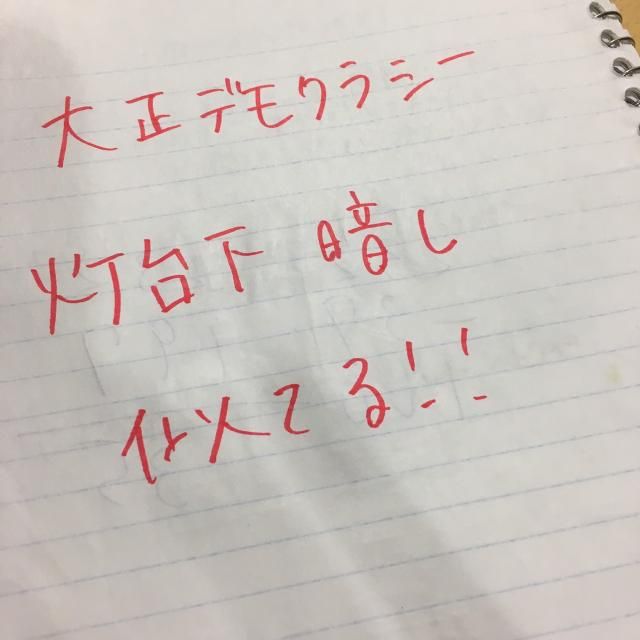 大正デモクラシー
灯台下暗し
似てる!!